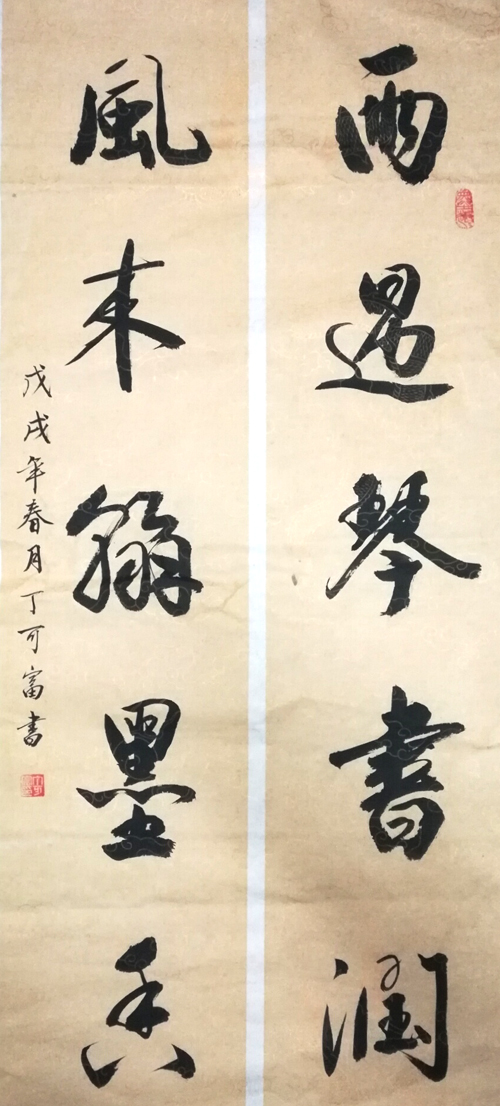 雨過琴書潤
風来翰墨香
戊戌年春月丁可富書